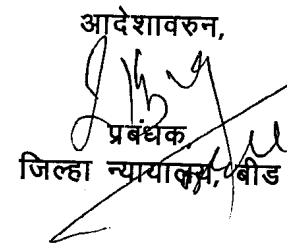 आदेशावरुन,
प्रबंधक,
जिल्हा न्यायालय, बीड